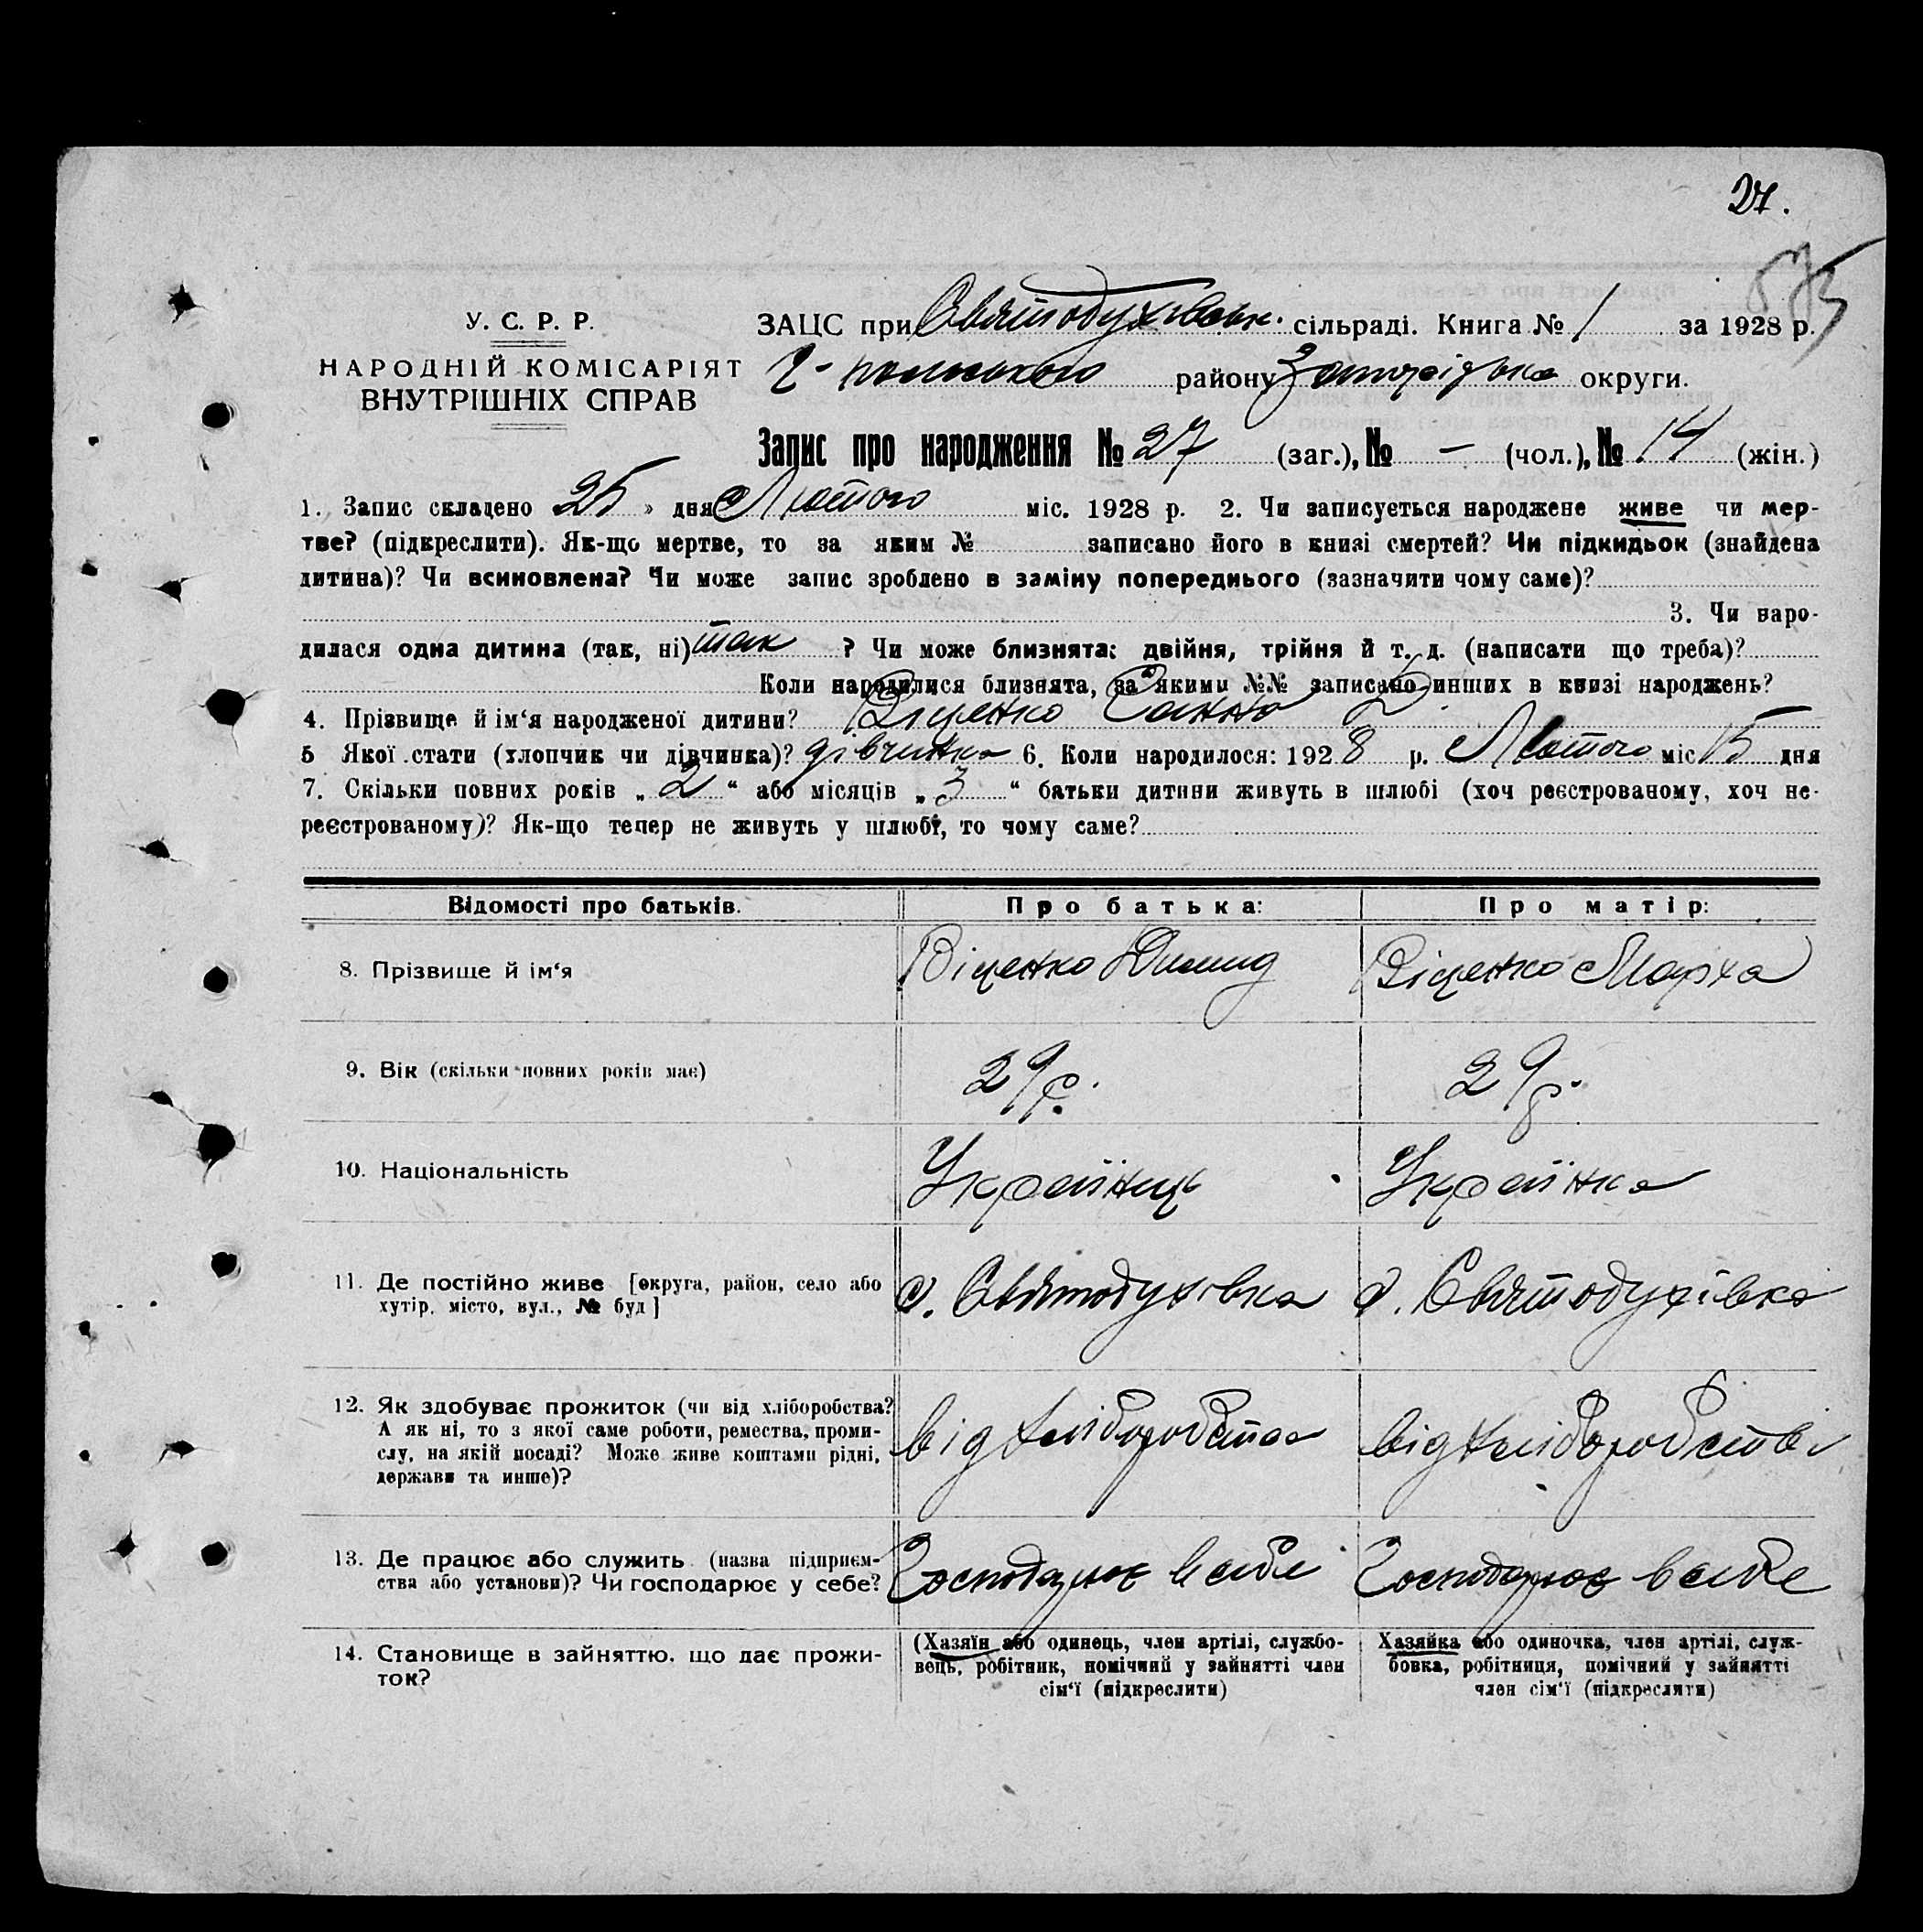 27.
575
У. С. Р. Р.
НАРОДНІЙ КОМІСАРІЯТ
ВНУТРІШНІХ СПРАВ
ЗАЦС при Святодухівськ. сільраді. Книга № 1 за 1928 р.
Г-польського району Запорізька округи.
Запис про народження № 27 (заг.), № – (чол.), № 14 (жін.)
1. Запис складено 25 » дня Лютого міс. 1928 р. 2. Чи записується народжене живе чи мер-
тве? (підкреслити). Як-що мертве, то за яким № записано його в книзі смертей? Чи підкидьок (знайдена
дитина)? Чи всиновлена? Чи може запис зроблено в заміну попереднього (зазначити чому саме)?
3. Чи наро-
дилася одна дитина (так, ні) так ? Чи може близнята: двійня, трійня й т. д. (написати що треба)?
Коли народилися близнята, за якими №№ записано инших в книзі народжень?
4. Прізвище й ім‘я народженої дитини? Віценко Ганна Д.
5 Якої стати (хлопчик чи дівчинка)? дівчинка 6. Коли народилося: 1928 р. Лютого міс 15 дня
7. Скільки повних років „ 2 “ або місяців „ 3 “ батьки дитини живуть в шлюбі (хоч реєстрованому, хоч не-
реєстрованому)? Як-що тепер не живуть у шлюбі, то чому саме?
Відомості про батьків. Про батька: Про матір:
8. Прізвище й ім‘я Віценко Віценко Марха
9. Вік (скільки повних років має) 29 р. 29 р.
10. Національність Українець Українка
11. Де постійно живе [округа, район, село або
хутір, місто, вул., № буд] с. Святодухівка с. Святодухівка
12. Як здобуває прожиток (чи від хліборобства?
А як ні, то з якої саме роботи, ремества, проми-
слу, на якій посаді? Може живе коштами рідні,
держави та инше)? від хліборобства від хліборобства
13. Де працює або служить (назва підприєм-
ства або установи)? Чи господарює у себе? Господарює в себе Господарює в себе
14. Становище в зайняттю, що дає прожи-
ток?
(Хазяїн або одинець, член артілі, службо-
вець, робітник, помічний у зайнятті член
сім‘ї (підкреслити)
Хазяйка або одиночка, член артілі, служ-
бовка, робітниця, помічний у зайнятті
член сім‘ї (підкреслити)